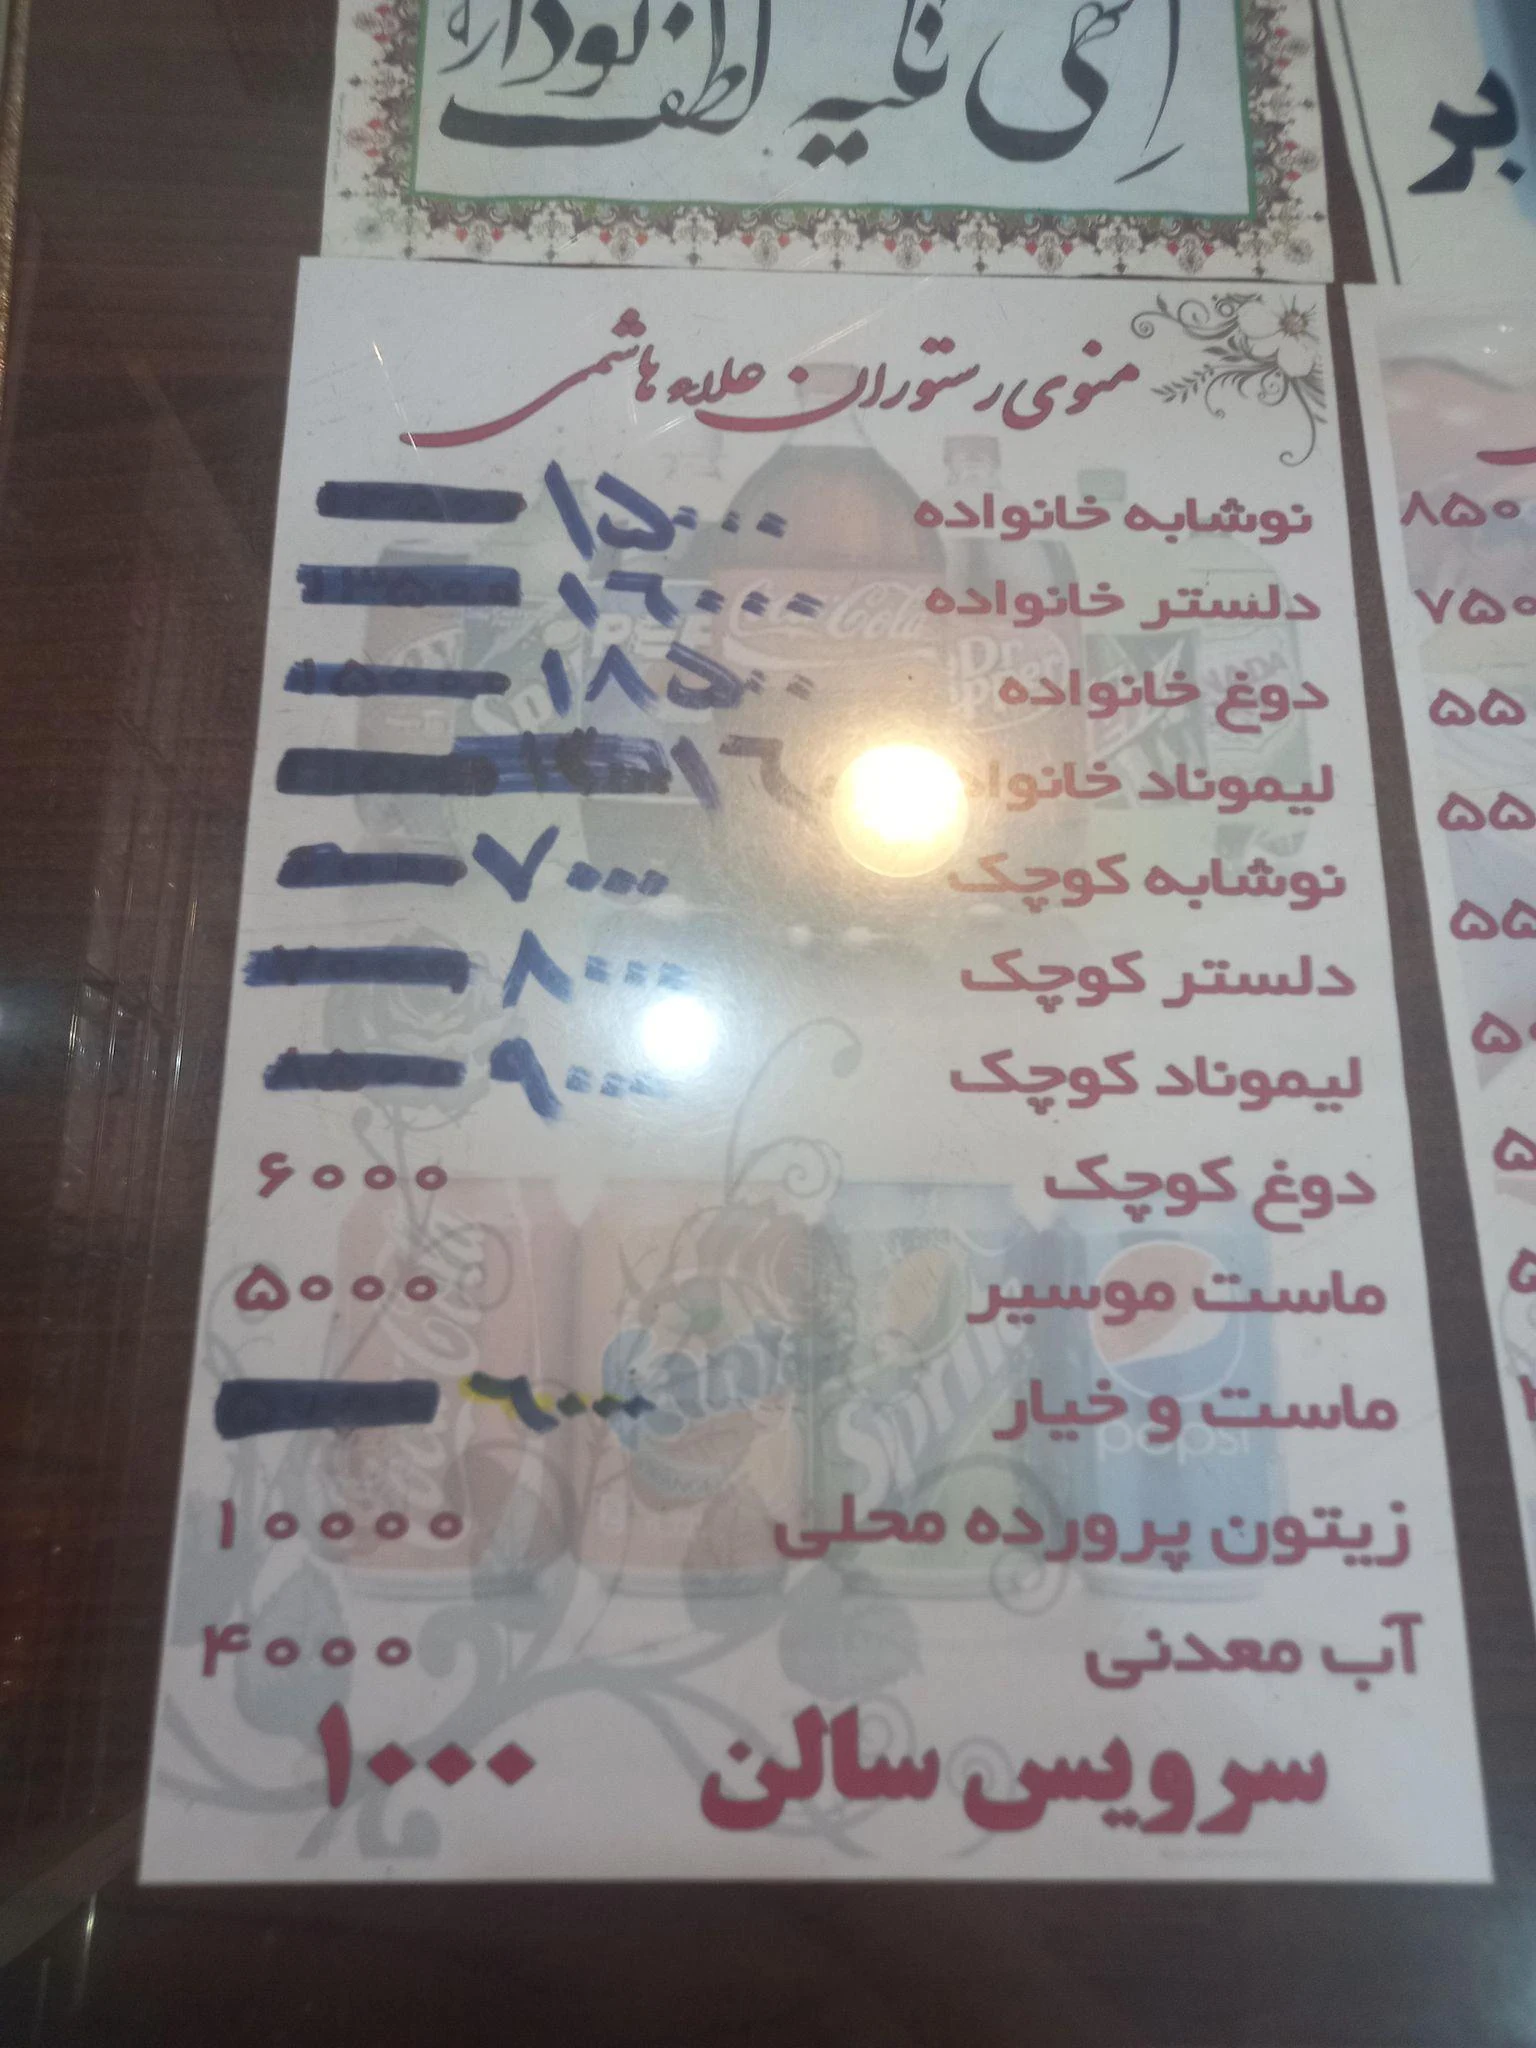 الهی تکیه بر لطف تو دارم
منوی رستوران علاءهاشمی
نوشابه خانواده ۱۵۰۰۰
دلستر خانواده ۱۶۰۰۰
دوغ خانواده ۱۸۵۰۰
لیموناد خانواده
نوشابه کوچک ۷۰۰۰
دلستر کوچک ۸۰۰۰
لیموناد کوچک ۹۰۰۰
دوغ کوچک ۶۰۰۰
ماست موسیر ۵۰۰۰
ماست و خیار ۶۰۰۰
زیتون پرورده محلی ۱۰۰۰۰
آب معدنی ۴۰۰۰
سرویس سالن ۱۰۰۰